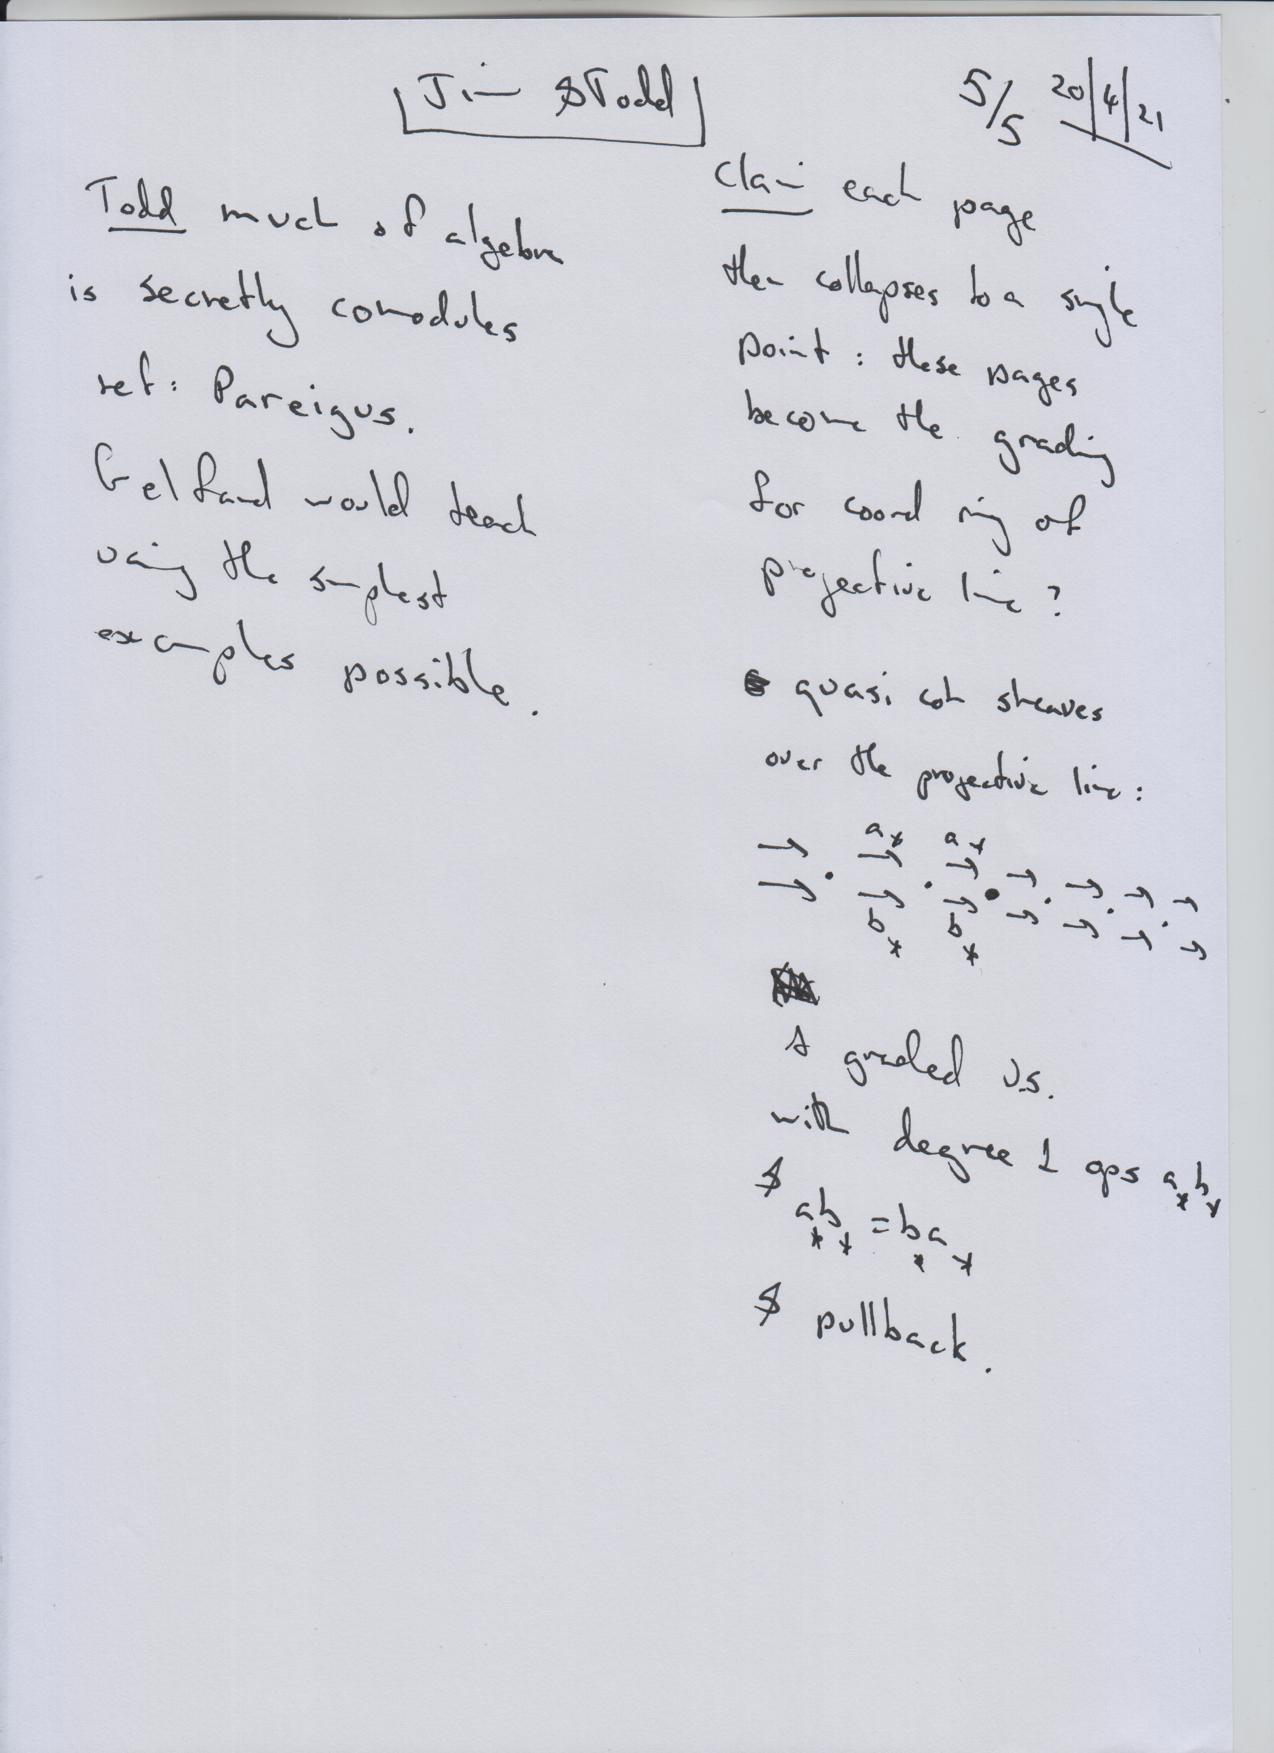 Jim & Todd
5/5 20/4/21
Todd much of algebra
is secretly comodules
ref: Pareigus.
Gelfand would teach
using the simplest
examples possible.
Claim each page
then collapses to a single
point: these pages
become the grading
for coord ring of
projective line?
quasi coh sheaves
over the projective line:
→ a* a* → → → →
→ . → . → • . . .
→ → → → → → →
b* b*
A graded v.s.
with degree 1 ops a* b*
& a* b* = b* a*
& pullback.